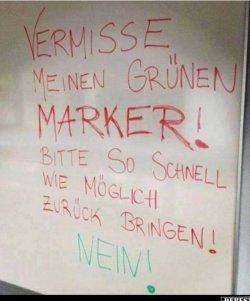 VERMISSE
MEINEN GRÜNEN
MARKER!
BITTE SO SCHNELL
WIE MÖGLICH
ZURÜCK BRINGEN!
NEIN!